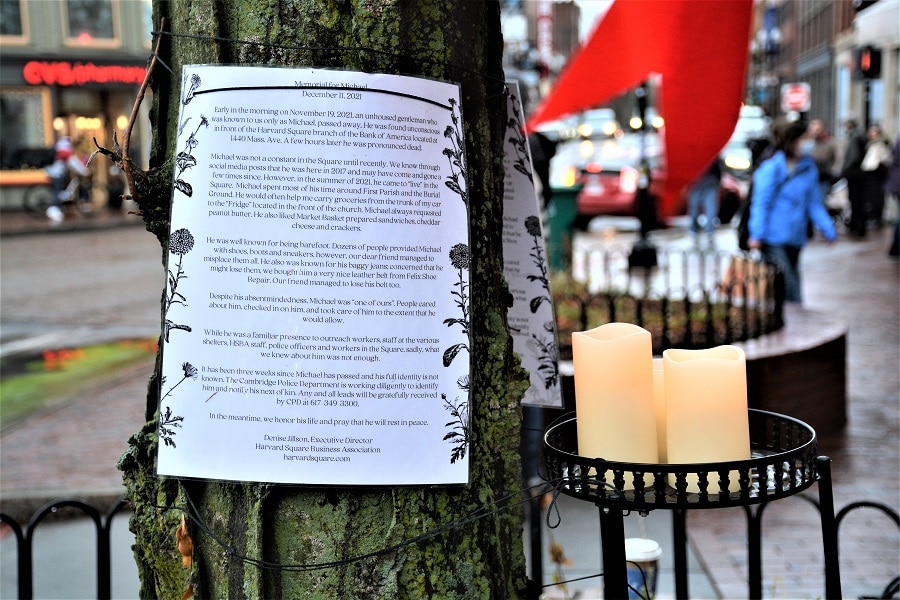 CVS pharmacy
Memorial for Michael
December 11, 2021
Early in the morning on November 19, 2021, an unhoused gentleman who
was known to us only as Michael, passed away. He was found unconscious
in front of the Harvard Square branch of the Bank of America located at
1440 Mass. Ave. A few hours later he was pronounced dead.
Michael was not a constant in the Square until recently. We know through
social media posts that he was here in 2017 and may have come and gone a
few times since. However, in the summer of 2021, he came to "live" in the
Square. Michael spent most of his time around First Parish and the Burial
Ground. He would often help me carry groceries from the trunk of my car
to the "Fridge" located in front of the church. Michael always requested
peanut butter. He also liked Market Basket prepared sandwiches, cheddar
cheese and crackers.
He was well known for being barefoot. Dozens of people provided Michael
with shoes, boots and sneakers, however, our dear friend managed to
misplace them all. He also was known for his baggy jeans; concerned that he
might lose them, we bought him a very nice leather belt from Felix Shoe
Repair. Our friend managed to lose his belt too.
Despite his absentmindedness, Michael was "one of ours". People cared
about him, checked in on him, and took care of him to the extent that he
would allow.
While he was a familiar presence to outreach workers, staff at the various
shelters, HSBA staff, police officers and workers in the Square, sadly, what
we knew about him was not enough.
It has been three weeks since Michael has passed and his full identity is not
known. The Cambridge Police Department is working diligently to identify
him and notify his next of kin. Any and all leads will be gratefully received
by CPD at 617-349-3300.
In the meantime, we honor his life and pray that he will rest in peace.
Denise Jillson, Executive Director
Harvard Square Business Association
harvardsquare.com